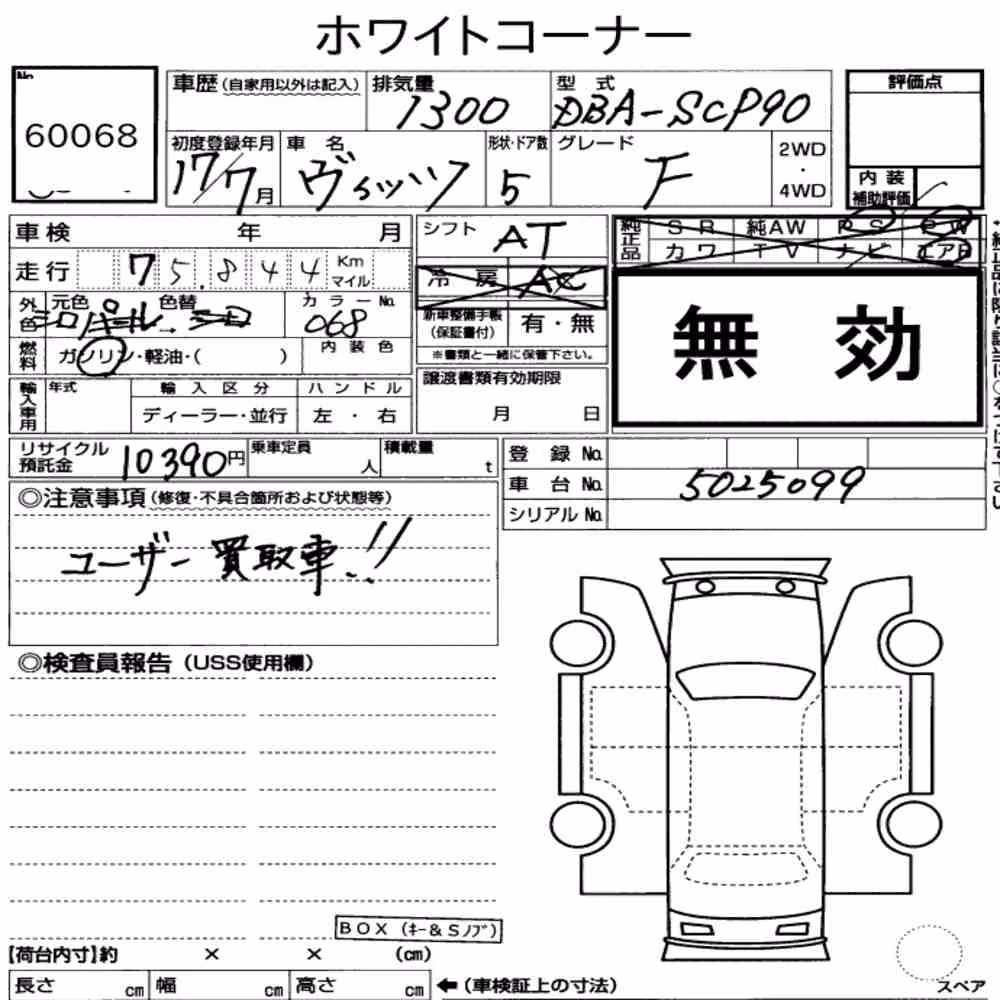 ホワイトコーナー
No.
60068
車歴 (自家用以外は記入)
排気量
1300
型式
DBA-SCP90
評価点
初度登録年月
17/7月
車名
ヴィッツ
形状・ドア数
5
グレード
F
2WD
・
4WD
内装
補助評価
車検 年 月
シフト
AT
純正品
SR 純AW PS PW
カワ TV ナビ エアB
走行 75,844 Km マイル
冷房 AC
無効
外色
元色 色替
シロパール→シロ
カラーNo.
068
新車整備手帳
(保証書付)
有・無
※書類と一緒に保管下さい。
燃料
ガソリン・軽油・( )
内装色
譲渡書類有効期限
月 日
輸入車用
年式
輸入区分
ディーラー・並行
ハンドル
左・右
リサイクル
預託金
10390円
乗車定員
人
積載量
t
登録No.
車台No. 5025099
シリアルNo.
◎注意事項 (修復・不具合箇所および状態等)
ユーザー買取車!!
◎検査員報告 (USS使用欄)
BOX (キー&Sノブ)
【荷台内寸】約 × × (cm)
長さ cm 幅 cm 高さ cm
←(車検証上の寸法)
スペア